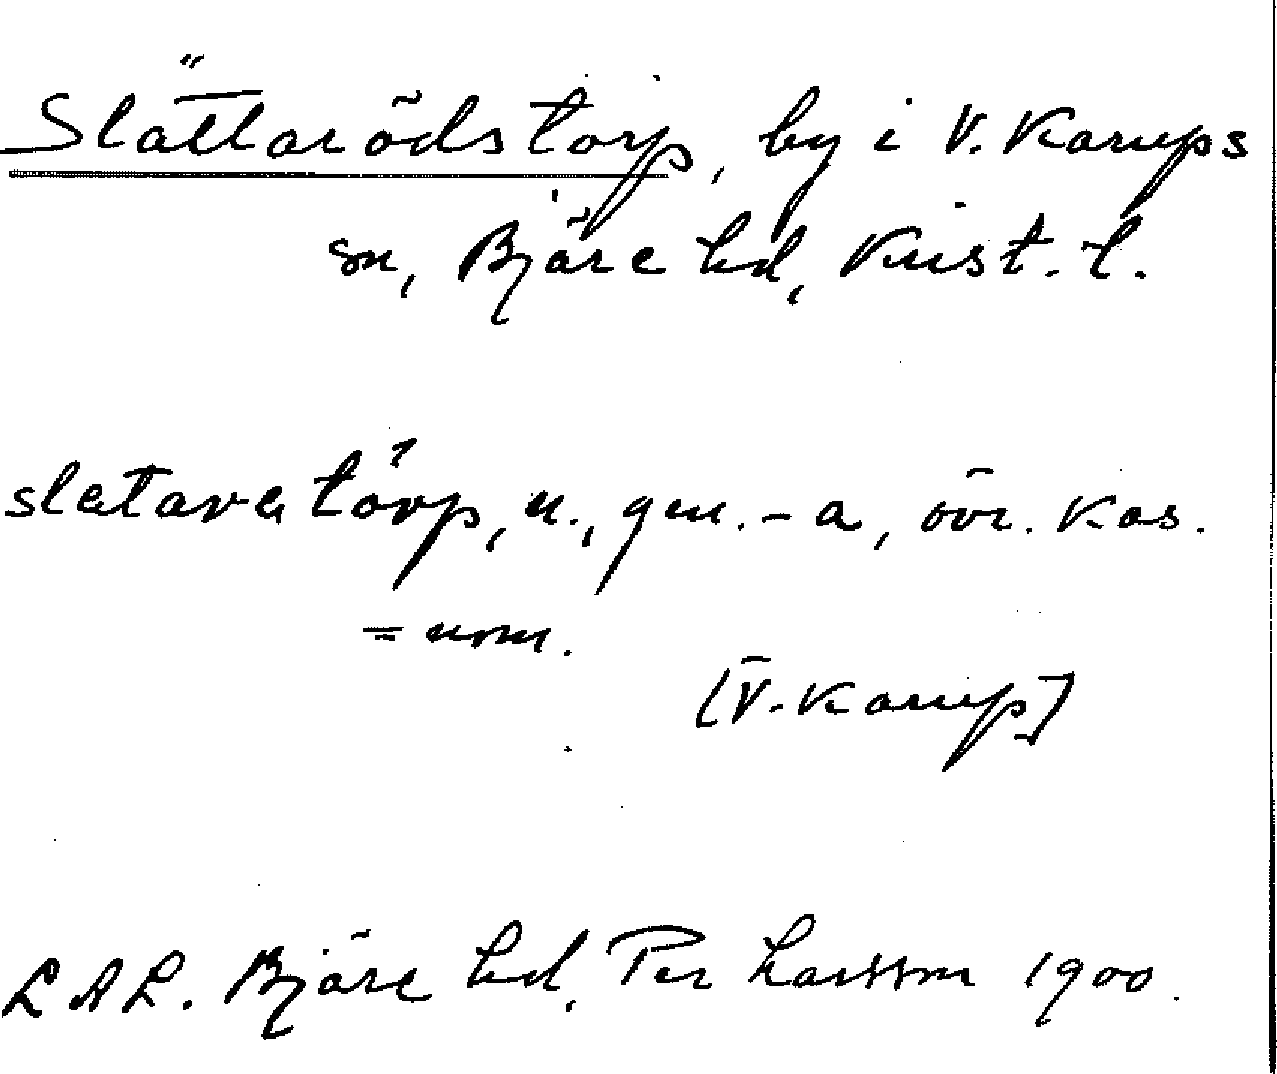 Slättarödstorp, by i V. Karups
sn, Bjäre hd, Krist. l.
slatava tórp, n., gen. -a, övr. kas.
= nom.
[V. Karup]
LAL. Bjäre hd, Per Larsson 1900.